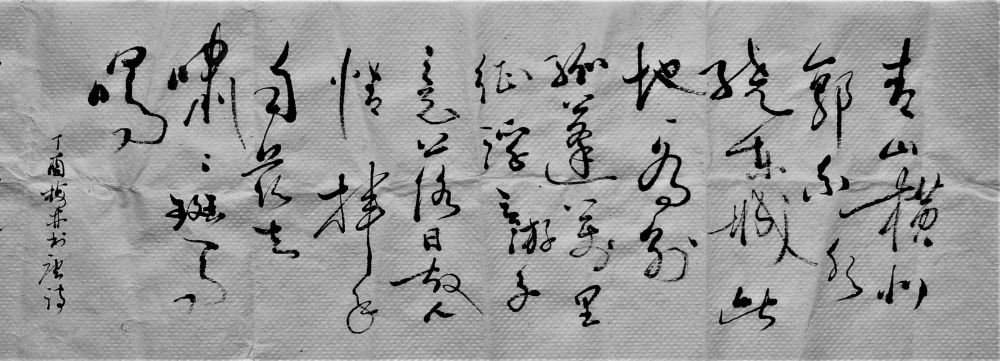 青山横北
郭白水
绕东城此
地一为别
孤蓬万里
征浮云游子
意落日故人
情挥手
自兹去
啸々班马
鸣
丁酉 书唐诗